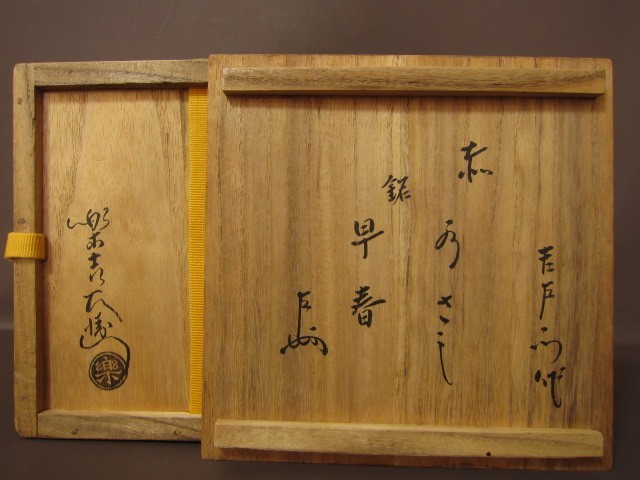 吉左衛門作
赤 水さし
銘 早春
樂吉左衛門
樂